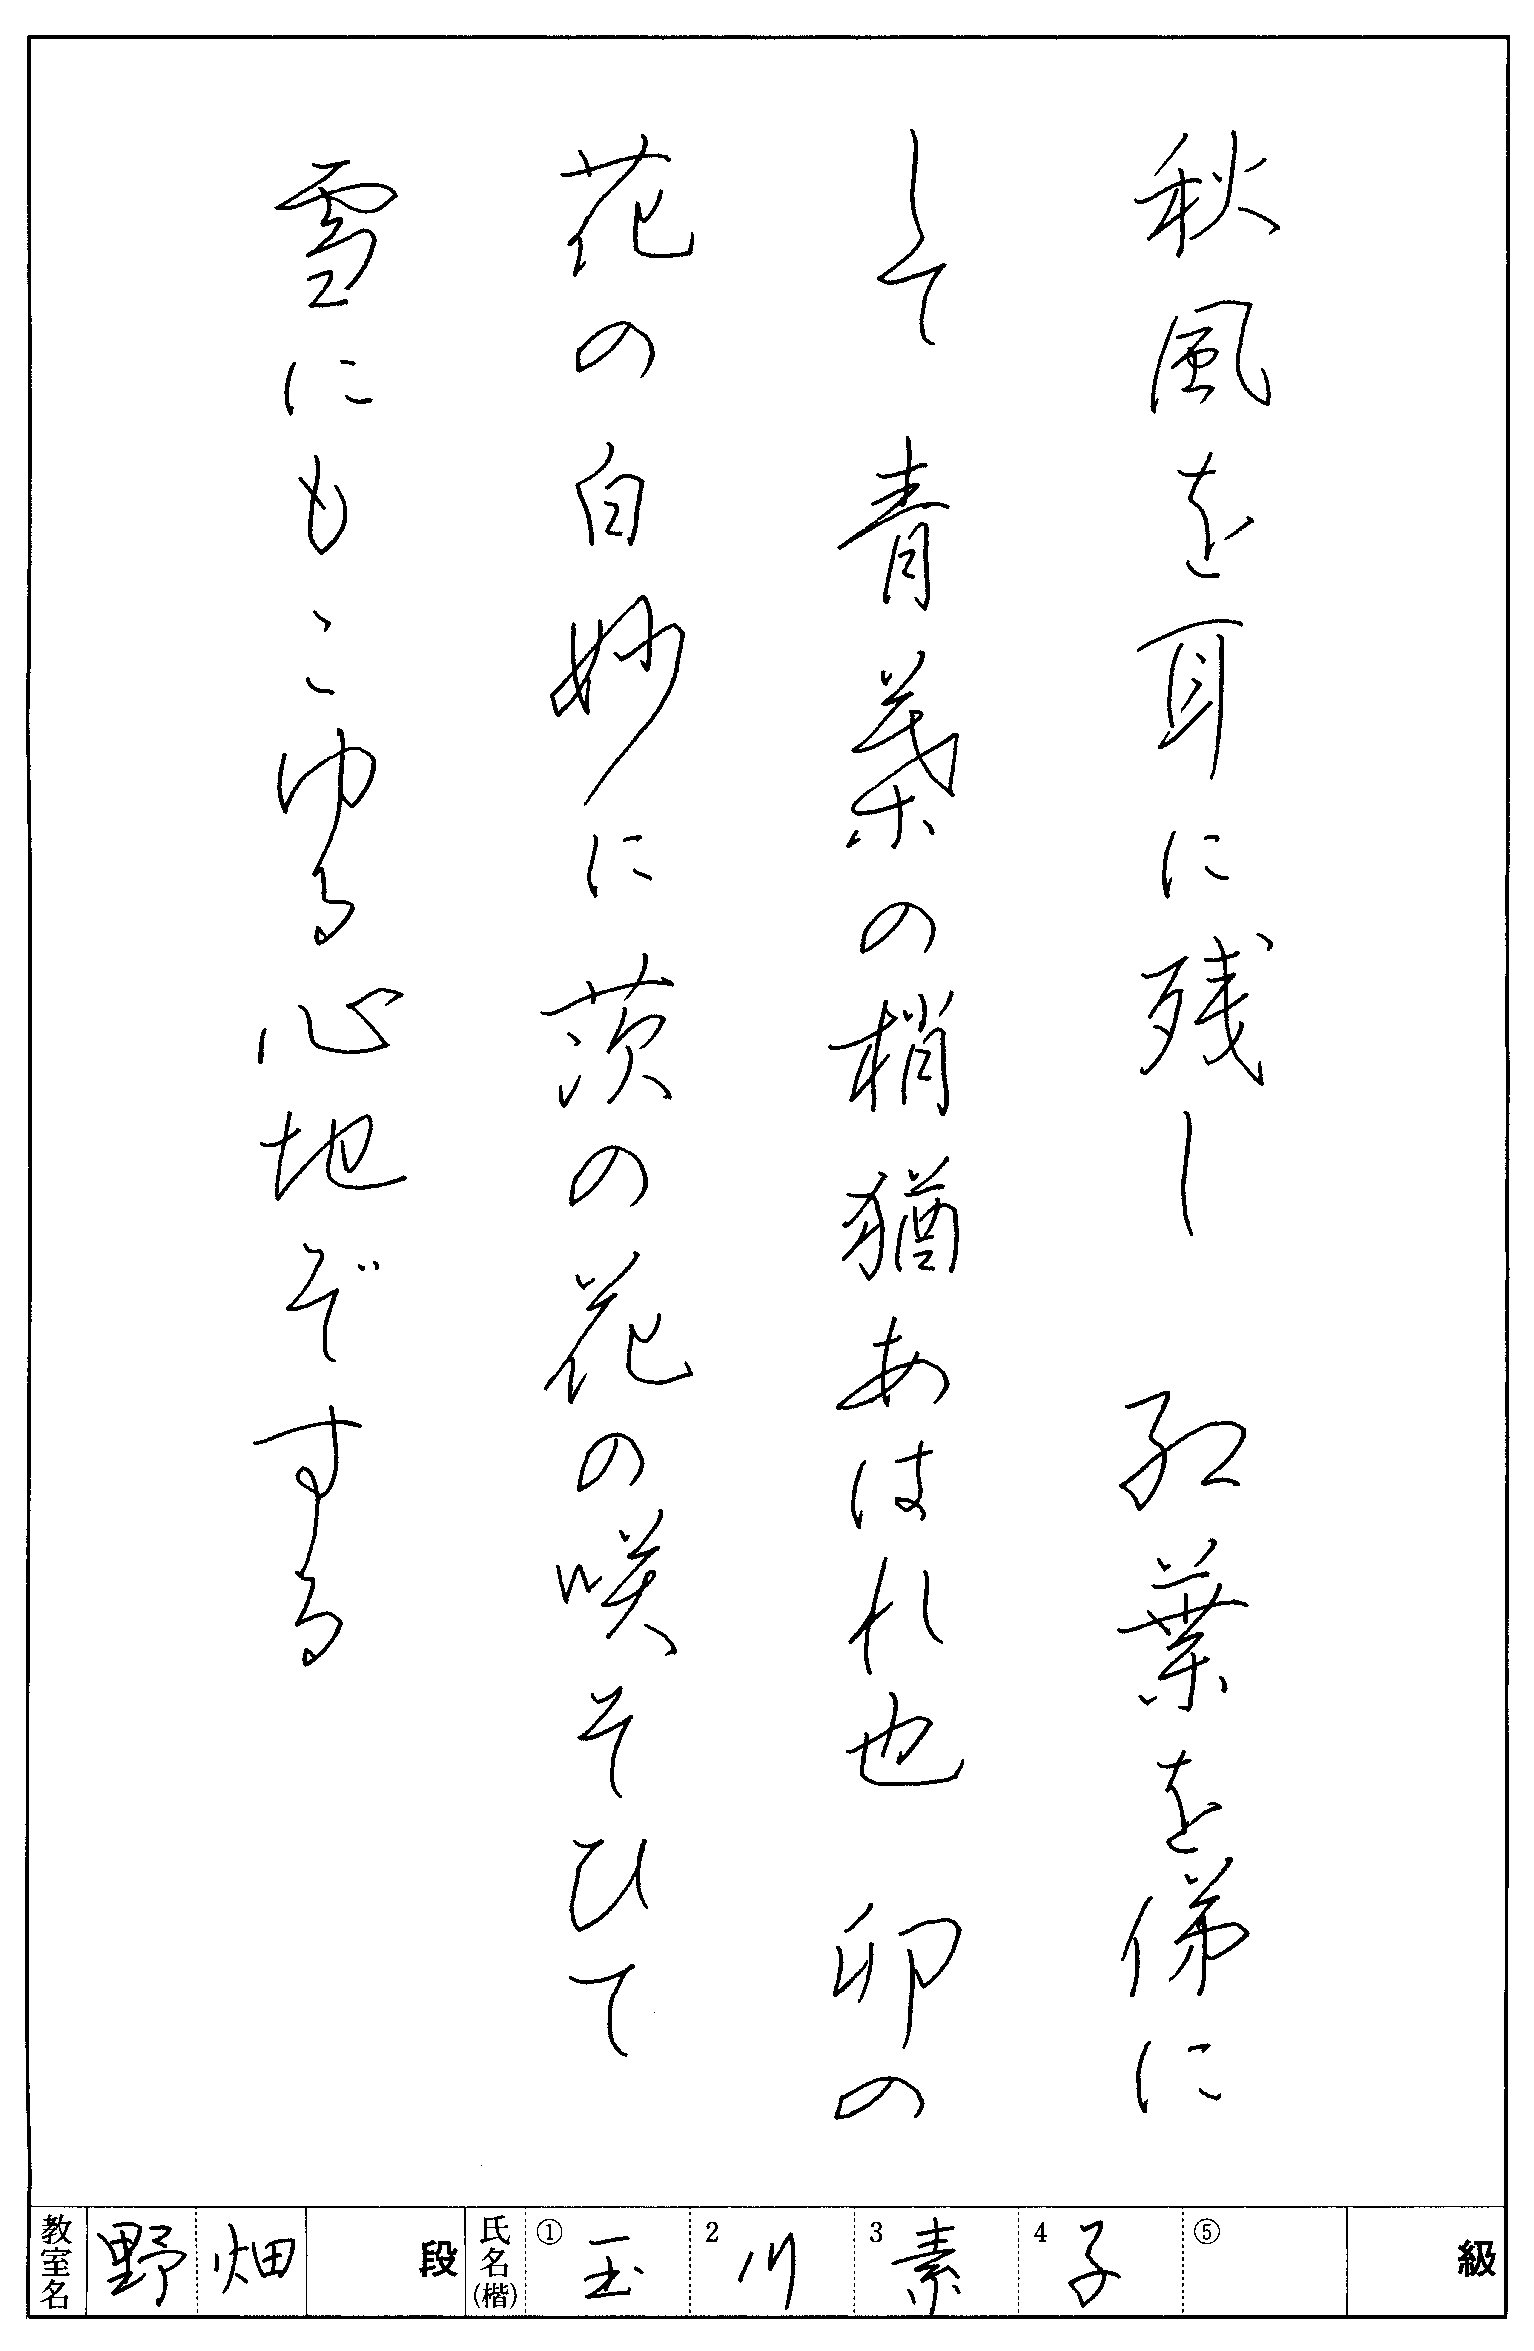 秋風を耳に残し 紅葉を俤に
して 青葉の梢猶あはれ也 卯の
花の白妙に茨の花の咲そひて
雪にもこゆる心地ぞする
教室名 野畑 段 氏名(楷) ① 玉 2 川 3 素 4 子 ⑤ 級